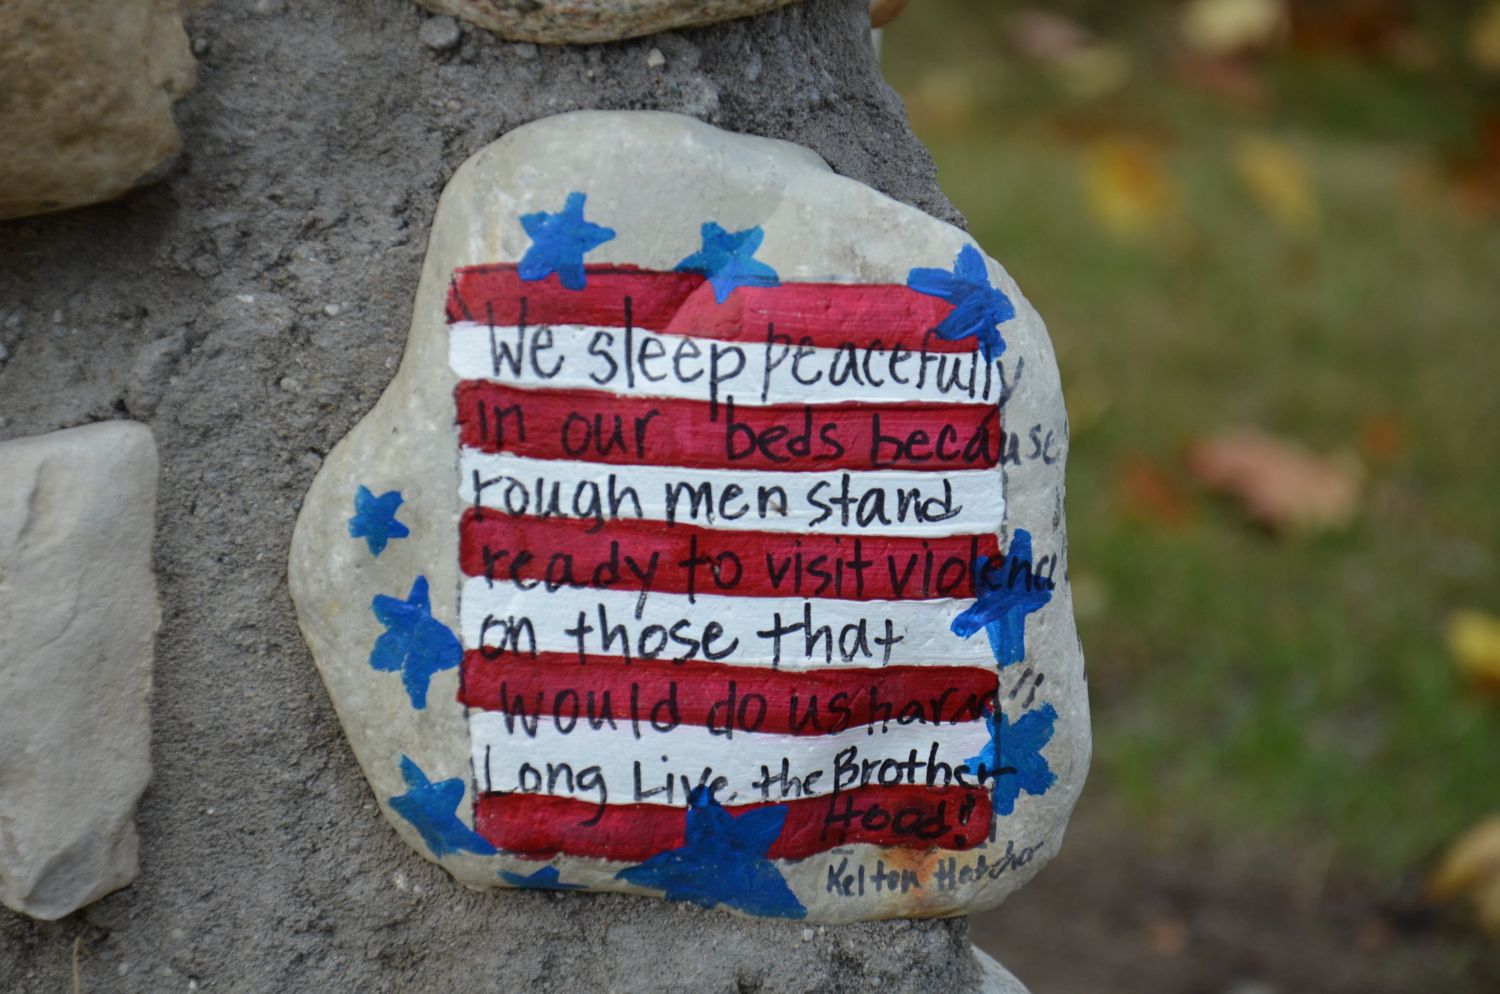 We sleep peacefully
in our beds because
rough men stand
ready to visit violence
on those that
would do us harm"
Long Live the Brother
Hood!
Kelton